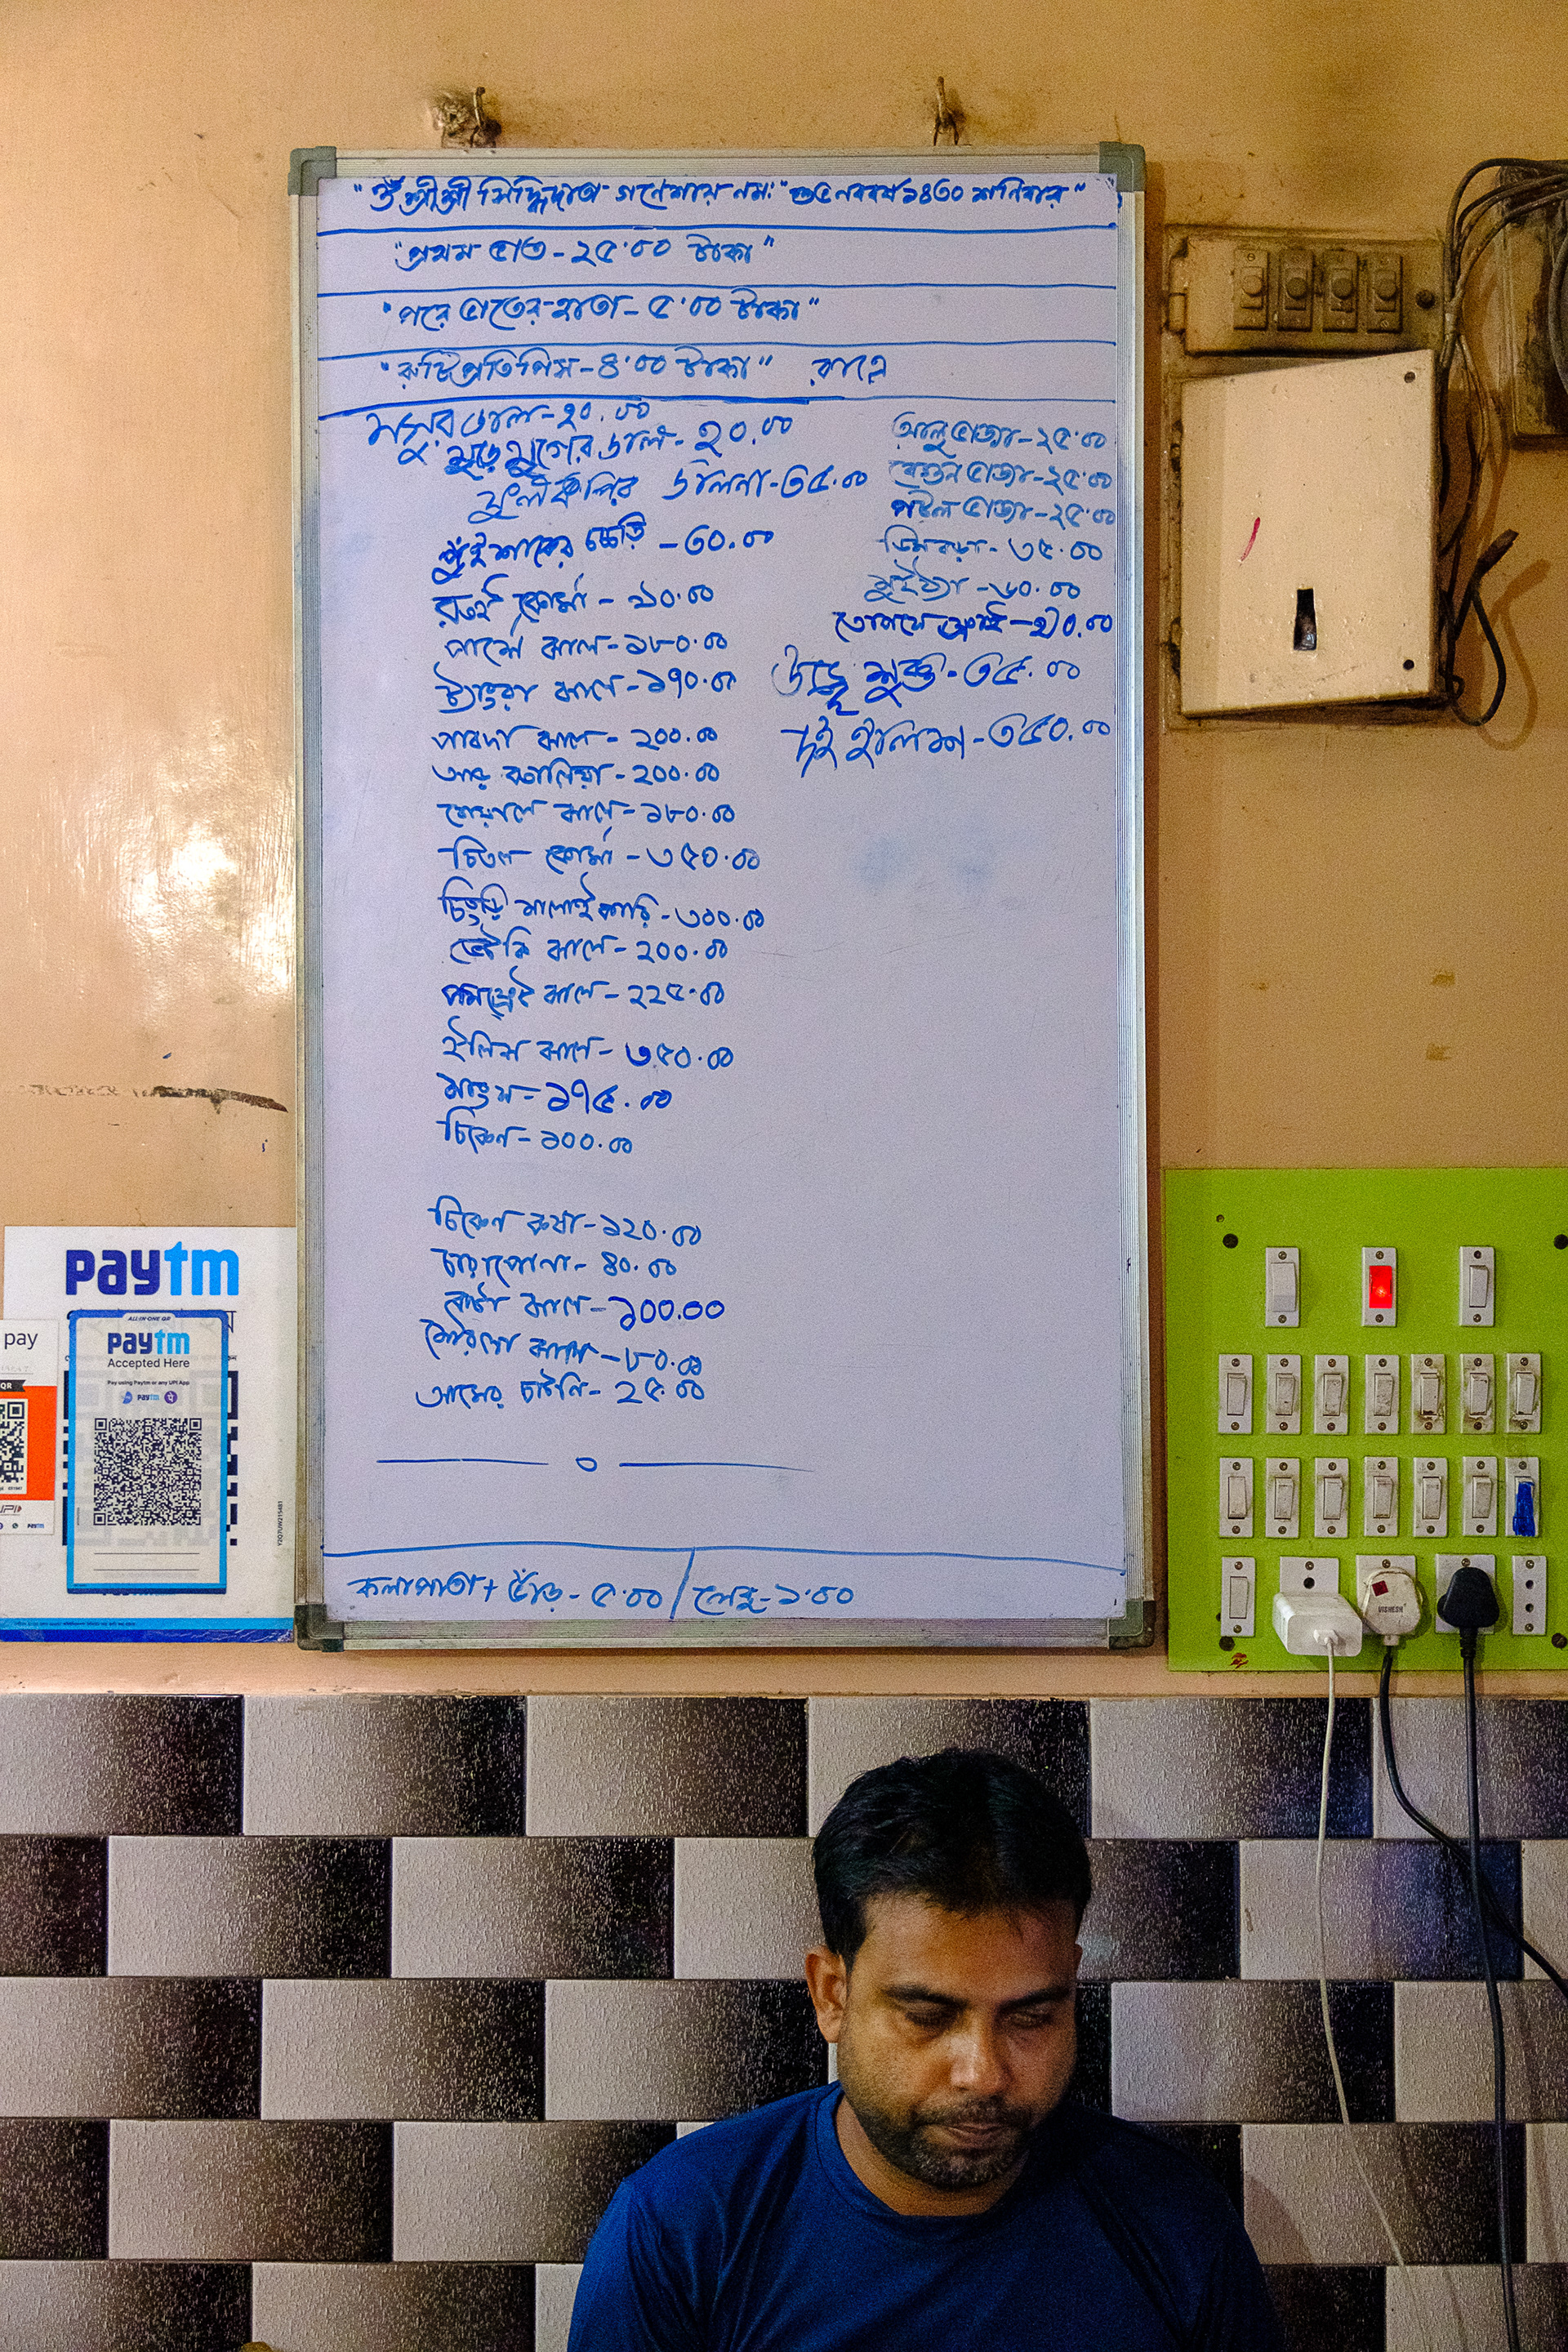 "ওঁ শ্রীশ্রী সিদ্ধিদাতা গণেশায় নমঃ" শুভ নববর্ষ ১৪৩০ শনিবার"
"প্রথম ভাত - ২৫.০০ টাকা"
"পরে ভাতের হাতা - ৫.০০ টাকা"
"রুটি প্রতি পিস - ৪.০০ টাকা" রাত্রে
মসুর ডাল - ২০.০০
মুড়ো মুগের ডাল - ২০.০০
ফুলকপির ডালনা - ৩৫.০০
পুঁইশাকের চচ্চড়ি - ৩০.০০
রুই কোর্মা - ৯০.০০
পার্শে ঝাল - ১৮০.০০
ট্যাংরা ঝাল - ১৭০.০০
পাবদা ঝাল - ২০০.০০
আড় কালিয়া - ২০০.০০
বোয়াল ঝাল - ১৮০.০০
চিতল কোর্মা - ৩৫০.০০
চিংড়ী মালাইকারি - ৩০০.০০
ভেটকি ঝাল - ২০০.০০
পমফ্রেট ঝাল - ২২৫.০০
ইলিশ ঝাল - ৩৫০.০০
মাংস - ১৭৫.০০
চিকেন - ১০০.০০
চিকেন কষা - ১২০.০০
চারাপোনা - ৪০.০০
ঝাল - ১০০.০০
মৌরলা ঝাল - ৮০.০০
আমের চাটনি - ২৫.০০
আলু ভাজা - ২৫.০০
বেগুন ভাজা - ২৫.০০
পটল ভাজা - ২৫.০০
ডিমবড়া - ৩৫.০০
মুইঠ্যা - ৬০.০০
তোপসে ফ্রাই - ৯০.০০
শুক্ত - ৩৫.০০
দই ইলিশ - ৩৫০.০০
কলাপাতা + ভাঁড় - ৫.০০ / লেবু - ১.০০
paytm
ALL IN ONE QR
paytm
Accepted Here
Pay using Paytm or any UPI App
paytm
pay
QR
UPI
paytm
VISHESH